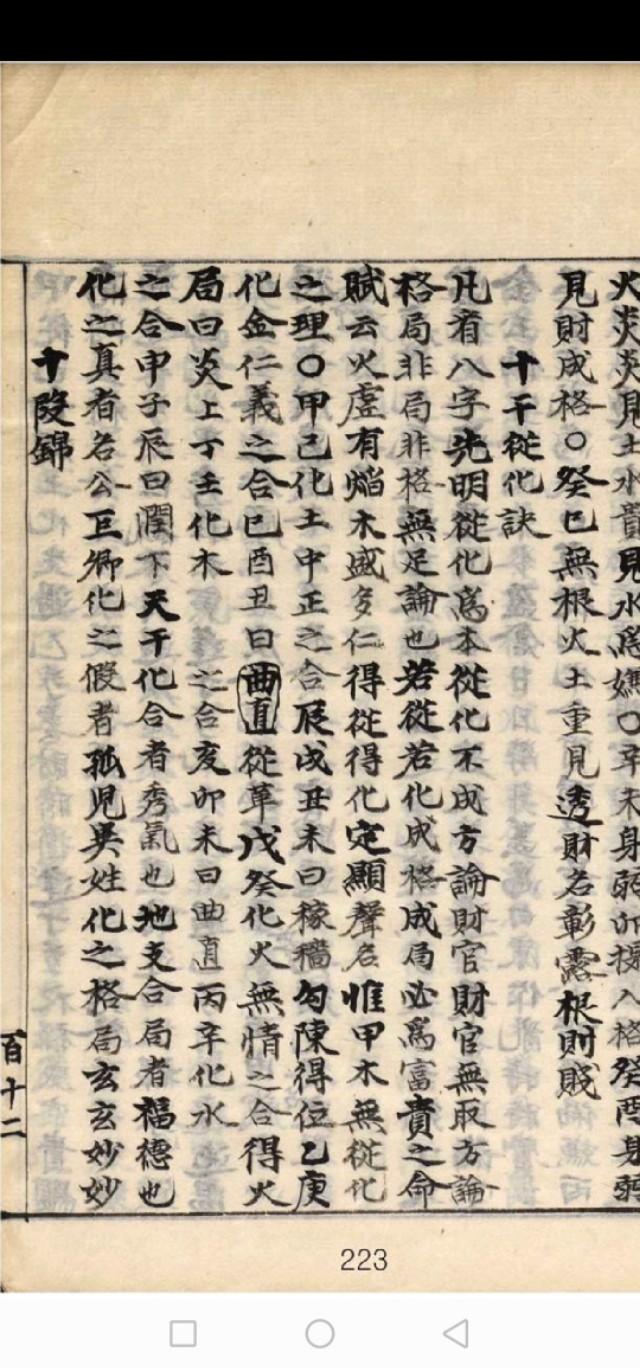 火炎炎見土水
見水為
辛未身弱卯
入格癸酉身弱
見財成格○癸巳無根火土重見透財名彰露根則賤
十干從化訣
凡看八字先明從化為本從化不成方論財官財官無取方論
格局非局非格無足論也若從若化成格成局必為富貴之命
賦云火虛有焰木盛多仁得從得化定顯聲名惟甲木無從化
之理○甲己化土中正之合辰戌丑未曰稼穡勾陳得位乙庚
化金仁義之合巳酉丑曰曲直從革戊癸化火無情之合得火
局曰炎上丁壬化木 之合亥卯未曰曲直丙辛化水
之合申子辰曰潤下天干化合者秀氣也地支合局者福德也
化之真者名公巨卿化之假者孤兒異姓化之格局玄玄妙妙
十段錦
百十二
223